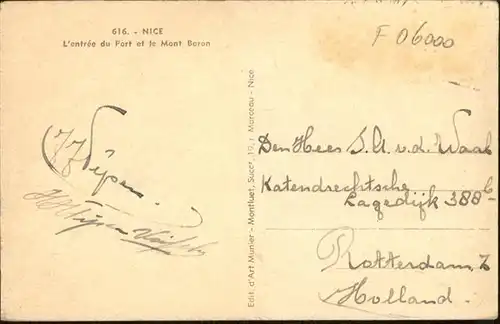 616. - NICE
L'entrée du Port et le Mont Boron
F 06000
Edit. d'Art Munier - Monfluet, Succr, 19, r. Marceau - Nice
Den Heer S. A. v. d. Waal
Katendrechtsche
Lagedijk 388 b
Rotterdam. Z
Holland.